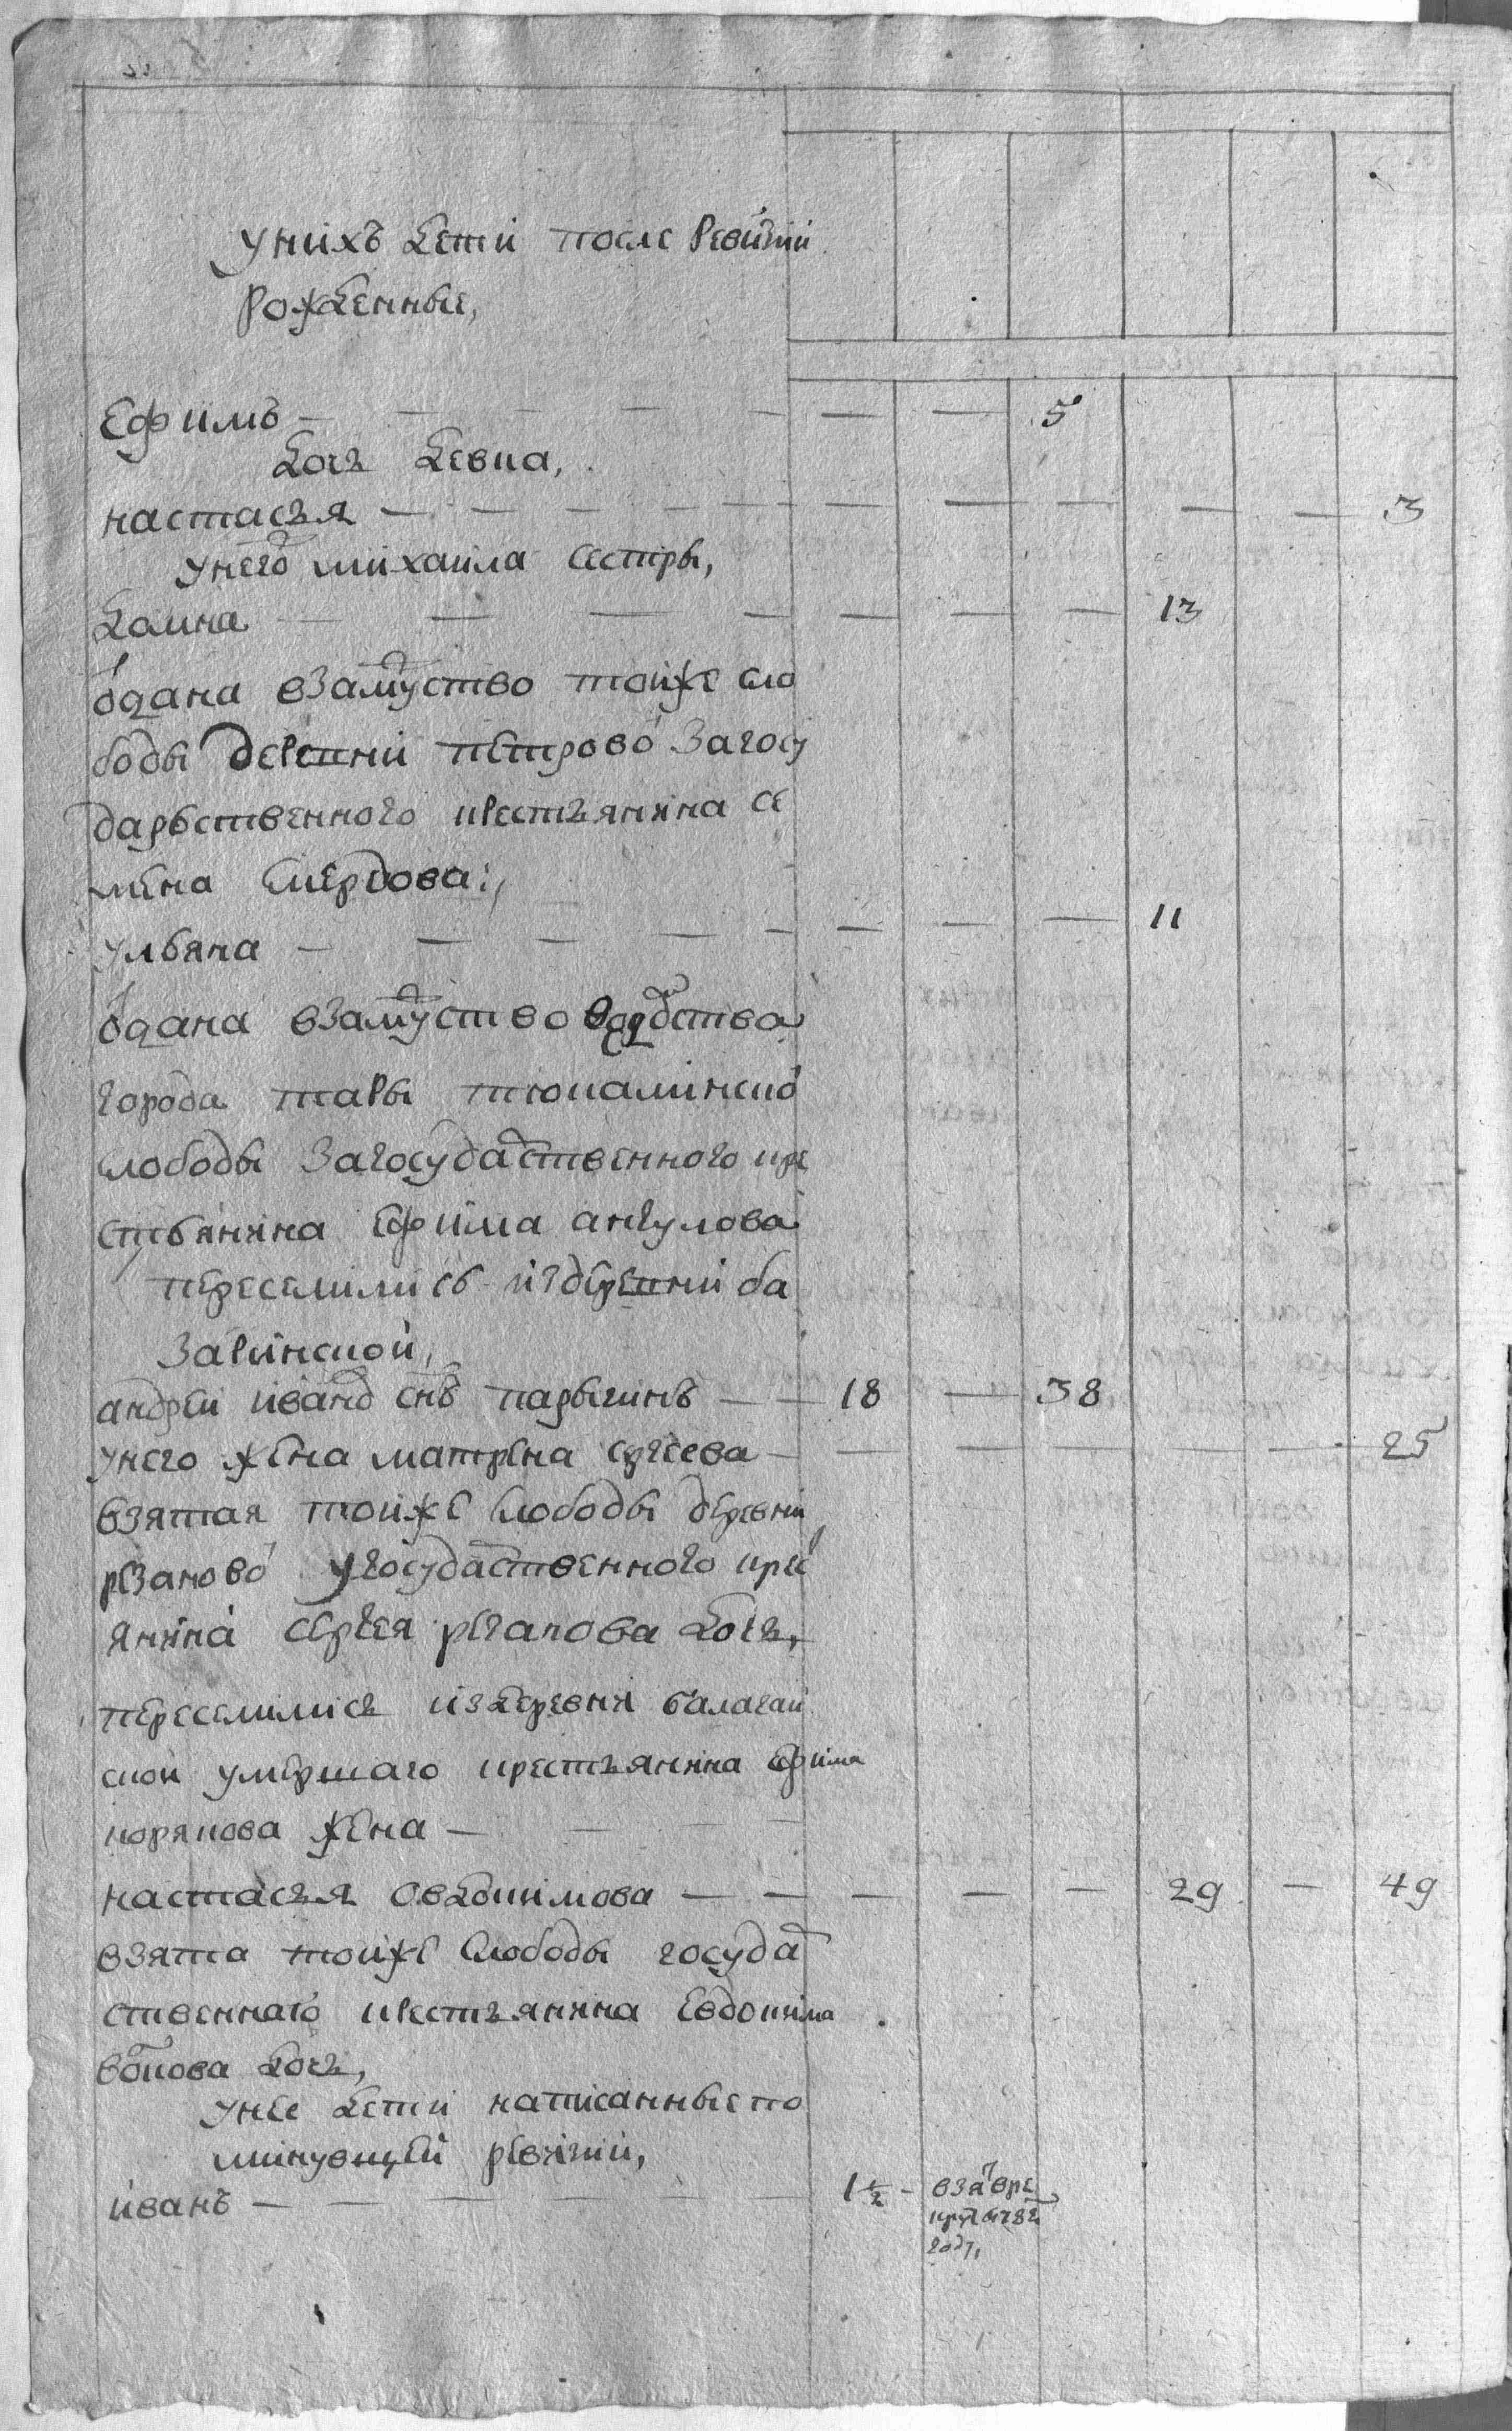 унихъ дети после ревизии
рожденные,
Ефимъ — — — — — — — 5
дочь девка,
настасья — — — — — — — — — — 3
унего михаила сестры,
домна — — — — — — 13
одана взамужство тойже сло
боды деревни петрово загосу
дарственного крестьянина се
мена смердова:,
ульяна — — — — — — — — 11
одана взамужство ведомства
города тары тюкалинско
слободы загосударственного кре
стьянина Ефима анкулова
переселились издеревни ба
заринской,
андрей иванов снъ парыгинъ — — 18 — 38
унего жена матрена сергеева — — — — — — 25
взятая тойже слободы деревни
резаново угосударственного крес
янина сергея резанова дочь,
переселились издеревни балаган
ской умершаго крестьянина Ефима
корякова жена — — — —
настасья овдокимова — — — — — 29 — 49
взята тойже слободы государ
ственнаго крестьянина Евдокима
вопова дочь,
унее дети написанные по
минувшей ревизии,
иванъ — — — — — — 1 1/2 - взят вре
круты 782
году,